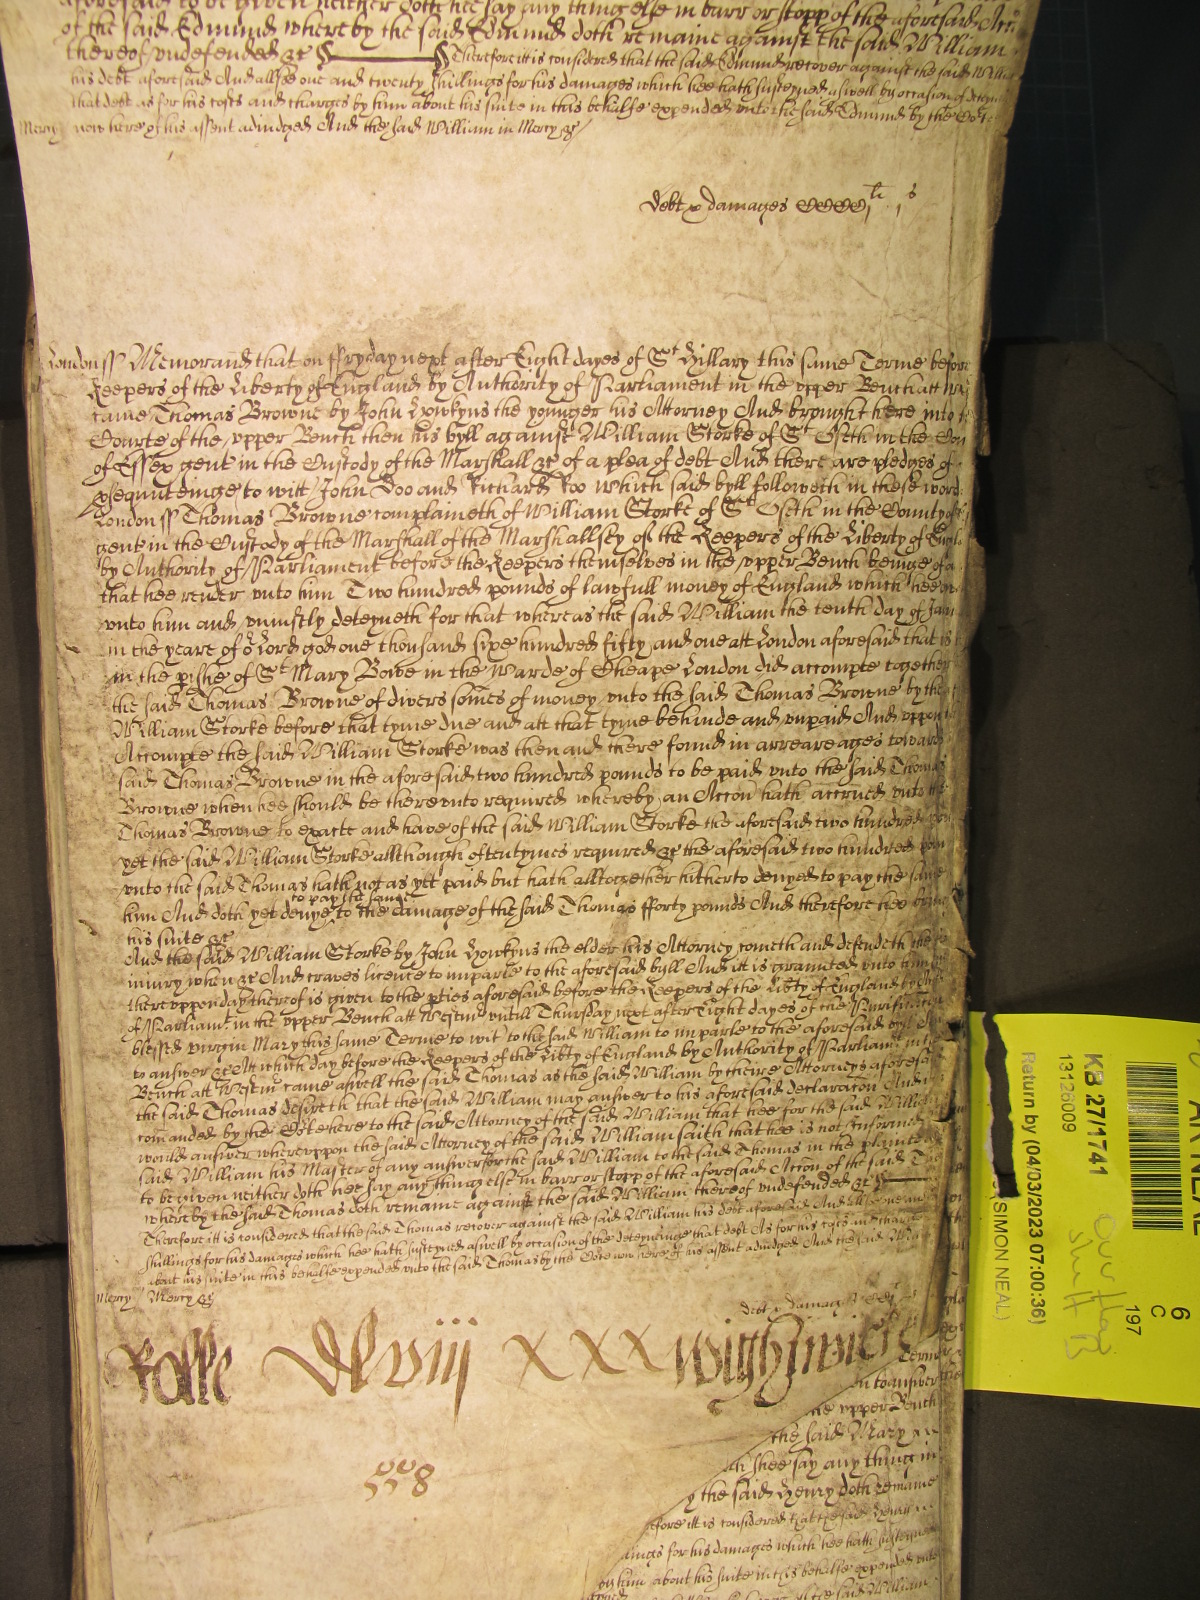 aforesaid to be given neither doth hee say any thing else in barr or stopp of the aforesaid Acc
of the said Edmund whereby the said Edmund doth remaine against the said William
thereof undefended &c Therefore it is considered that the said Edmund recover against the said Willia
his debt aforesaid And allsoe one and twenty shillings for his damages which hee hath susteyned aswell by occasion of deteyn
that debt as for his costs and charges by him about his suite in this behalfe expended unto the said Edmund by the Cort
Mercy now here of his assent adiudged And the said William in Mercy &c
debt & damages CCCCj li j s
London ss Memorand that on ffryday next after Eight dayes of St Hillary this same Terme before
Keepers of the Liberty of England by Authority of Parliament in the upper Bench att We
came Thomas Browne by John Howkyns the younger his Attorney And brought here into
Courte of the upper Bench then his byll against William Storke of St Oseth in the Cou
of Essex gent in the Custody of the Marshall &c of a plea of debt And there are pledges of
psequuteinge to witt John Doo and Richard Roo Which said byll followeth in these word
London ss Thomas Browne complaineth of William Storke of St Oseth in the County of
gent in the Custody of the Marshall of the Marshallsey of the Keepers of the Liberty of Engla
by Authority of Parliament before the Keepers themselves in the upper Bench beinge of a
that hee render unto him Two hundred pounds of lawfull money of England which hee ow
unto him and uniustly deteyneth for that whereas the said William the tenth day of Jan
in the yeare of or Lord god one thousand sixe hundred fifty and one att London aforesaid that is
in the pishe of St Mary Bowe in the Warde of Cheape London did accompte together
the said Thomas Browne of divers somes of money unto the said Thomas Browne by the
William Storke before that tyme due and att that tyme behinde and unpaid And uppon
Accompte the said William Storke was then and there found in arrearages toward
said Thomas Browne in the aforesaid two hundred pounds to be paid unto the said Thomas
Browne when hee should be thereunto required whereby an Accon hath accrued unto the
Thomas Browne to exacte and have of the said William Storke the aforesaid two hundred pou
yet the said William Storke allthough oftentymes required &c the aforesaid two hundred pou
unto the said Thomas hath not as yett paid but hath alltogether hitherto denyed to pay the same
to pay the same
him And doth yet denye to the damage of the said Thomas fforty pounds And therefore hee bring
his suite &c
And the said William Storke by John Howkyns the elder his Attorney cometh and defendeth the
iniury when &c And craves licence to imparle to the aforesaid byll And it is graunted unto him
thereuppon day thereof is given to the pties aforesaid before the Keepers of the Libty of England by
of Parliamt in the upper Bench att Westm untill Thursday next after Eight dayes of the Purification
blessed virgin Mary this same Terme to wit to the said William to imparle to the aforesaid byll
to answer &c At which day before the Keepers of the Libty of England by Authority of Parliamt in
Bench att Westm came aswell the said Thomas as the said William by theire Attorneys aforesa
the said Thomas desireth that the said William may answer to his aforesaid declaracon And
comanded by the Cort here to the said Attorney of the said William that hee for the said William
would answer whereuppon the said Attorney of the said William saith that hee is not Informed
said William his Master of any answer for the said William to the said Thomas in the plainte
to be given neither doth hee say any thing else in barr or stopp of the aforesaid Accon of the said
whereby the said Thomas doth remaine against the said William thereof undefended &c
Therefore it is considered that the said Thomas recover against the said William his debt aforesaid And allsoe one and
shillings for his damages which hee hath susteyned aswell by occasion of the deteyninge that debt As for his costs and charge
about his suite in this behalfe expended unto the said Thomas by the Cort now here of his assent adiudged And the said
Mercy Mercy &c
debt & damages
Rolle Dlviij xxx Wightwick
558
Terme
to answer
the upper Bench
the said Mary
hee say any thing in
the said Henry doth remaine
fore itt is considered that the said Henry
lings for his damages which hee hath susteyned
by him about his suite in this behalfe expended unto
the said William
AR NEAL
6
C
197
KB 27/1741
13126009
Return by (04/03/2023 07:00:36)
(SIMON NEAL)